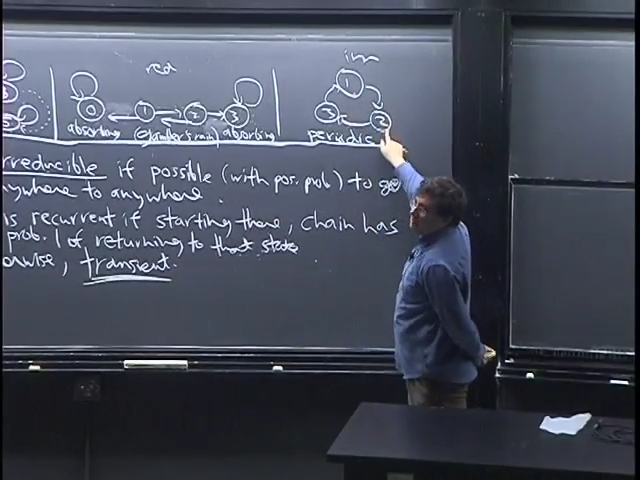 red
irr
0 1 2 3
1
3 2
absorbing (Gambler's ruin) absorbing
periodic
irreducible if possible (with pos. prob) to go
anywhere to anywhere.
is recurrent if starting there, chain has
prob. 1 of returning to that state
transient.